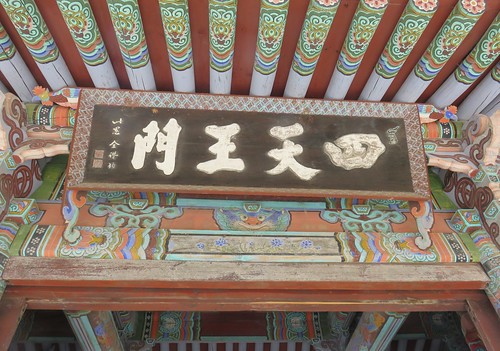 四天王門